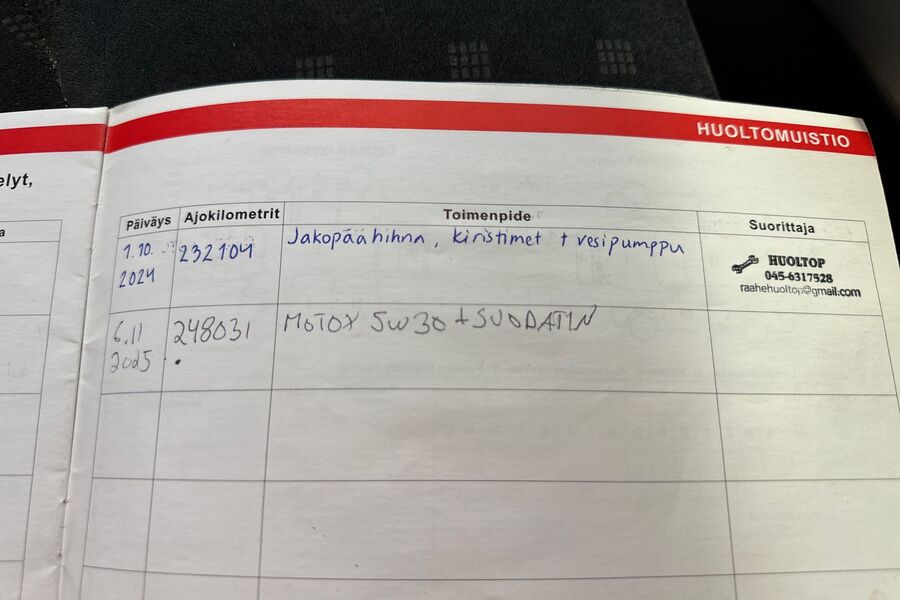 HUOLTOMUISTIO
elyt,
a
Päiväys Ajokilometrit Toimenpide Suorittaja
1.10. 2024 232104 Jakopäähihna, kiristimet + vesipumppu
HUOLTOP
045-6317528
raahehuoltop@gmail.com
6.11 2025 248031 MOTOX 5W30 + SUODATIN